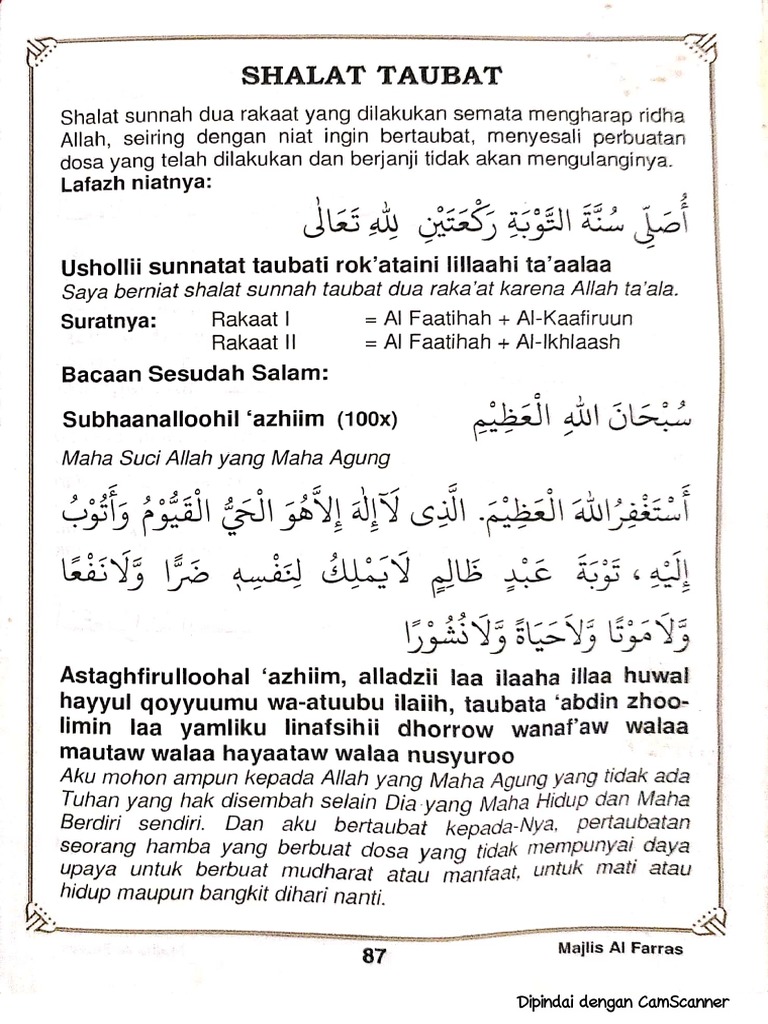 SHALAT TAUBAT
Shalat sunnah dua rakaat yang dilakukan semata mengharap ridha
Allah, seiring dengan niat ingin bertaubat, menyesali perbuatan
dosa yang telah dilakukan dan berjanji tidak akan mengulanginya.
Lafazh niatnya:
أُصَلِّى سُنَّةَ التَّوْبَةِ رَكْعَتَيْنِ لِلّٰهِ تَعَالٰى
Ushollii sunnatat taubati rok’ataini lillaahi ta’aalaa
Saya berniat shalat sunnah taubat dua raka’at karena Allah ta’ala.
Suratnya: Rakaat I = Al Faatihah + Al-Kaafiruun
Rakaat II = Al Faatihah + Al-Ikhlaash
Bacaan Sesudah Salam:
Subhaanalloohil ‘azhiim (100x) سُبْحَانَ اللهِ الْعَظِيْمِ
Maha Suci Allah yang Maha Agung
أَسْتَغْفِرُ اللهَ الْعَظِيْمَ. الَّذِى لَآ إِلٰهَ إِلاَّ هُوَ الْحَيُّ الْقَيُّوْمُ وَأَتُوْبُ
إِلَيْهِ، تَوْبَةَ عَبْدٍ ظَالِمٍ لَايَمْلِكُ لِنَفْسِهٖ ضَرًّا وَّلَانَفْعًا
وَّلَا مَوْتًا وَّلَاحَيَاةً وَّلَانُشُوْرًا
Astaghfirulloohal ‘azhiim, alladzii laa ilaaha illaa huwal
hayyul qoyyuumu wa-atuubu ilaiih, taubata ‘abdin zhoo-
limin laa yamliku linafsihii dhorrow wanaf’aw walaa
mautaw walaa hayaataw walaa nusyuroo
Aku mohon ampun kepada Allah yang Maha Agung yang tidak ada
Tuhan yang hak disembah selain Dia yang Maha Hidup dan Maha
Berdiri sendiri. Dan aku bertaubat kepada-Nya, pertaubatan
seorang hamba yang berbuat dosa yang tidak mempunyai daya
upaya untuk berbuat mudharat atau manfaat, untuk mati atau
hidup maupun bangkit dihari nanti.
87
Majlis Al Farras
Dipindai dengan CamScanner